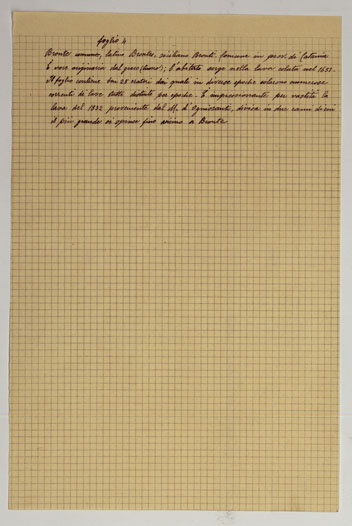 foglio 4
Bronte comune, latino Brontes, siciliano Bronti. Comune in prov. di Catania
È voce originaria dal greco (tuono); l'abitato sorge nella lava colata nel 1651.
Il foglio contiene ben 25 crateri dai quali in diverse epoche uscirono numerose
correnti di lave dette distinte per epoche. È impressionante per vastità la
lava del 1832 proveniente dal M. d'Ognissanti, divisa in due rami di cui
il più grande si spense fino vicino a Bronte.